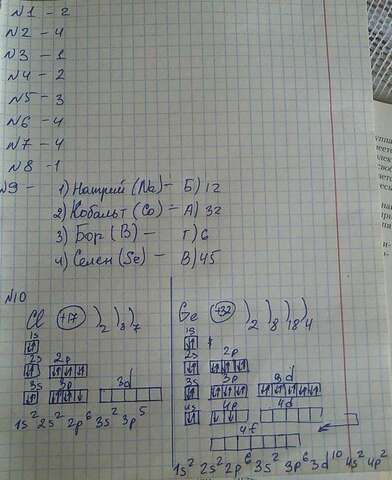 №1 - 2
№2 - 4
№3 - 1
№4 - 2
№5 - 3
№6 - 4
№7 - 4
№8 - 1
№9 - 1) Натрий (Na) - Б) 12
2) Кобальт (Co) - А) 32
3) Бор (B) - Г) 6
4) Селен (Se) - В) 45
№10
Cl +17 ) ) ) 2 8 7
1s
2s 2p
3s 3p 3d
1s² 2s² 2p⁶ 3s² 3p⁵
Ge +32 ) ) ) ) 2 8 18 4
1s
2s 2p
3s 3p 3d
4s 4p 4d
4f
1s² 2s² 2p⁶ 3s² 3p⁶ 3d¹⁰ 4s² 4p²